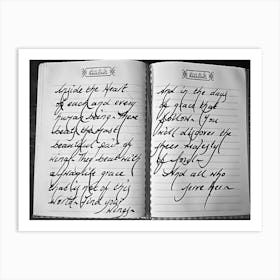 Inside the Heart
of each and every
human being. There
beats the most
beautiful pair of
wings. They beat with
a
grace
that is not of this
world. Find your
wings.
And in the days
of grace that
follow. You
will discover the
sheer majesty
of
And all who
here